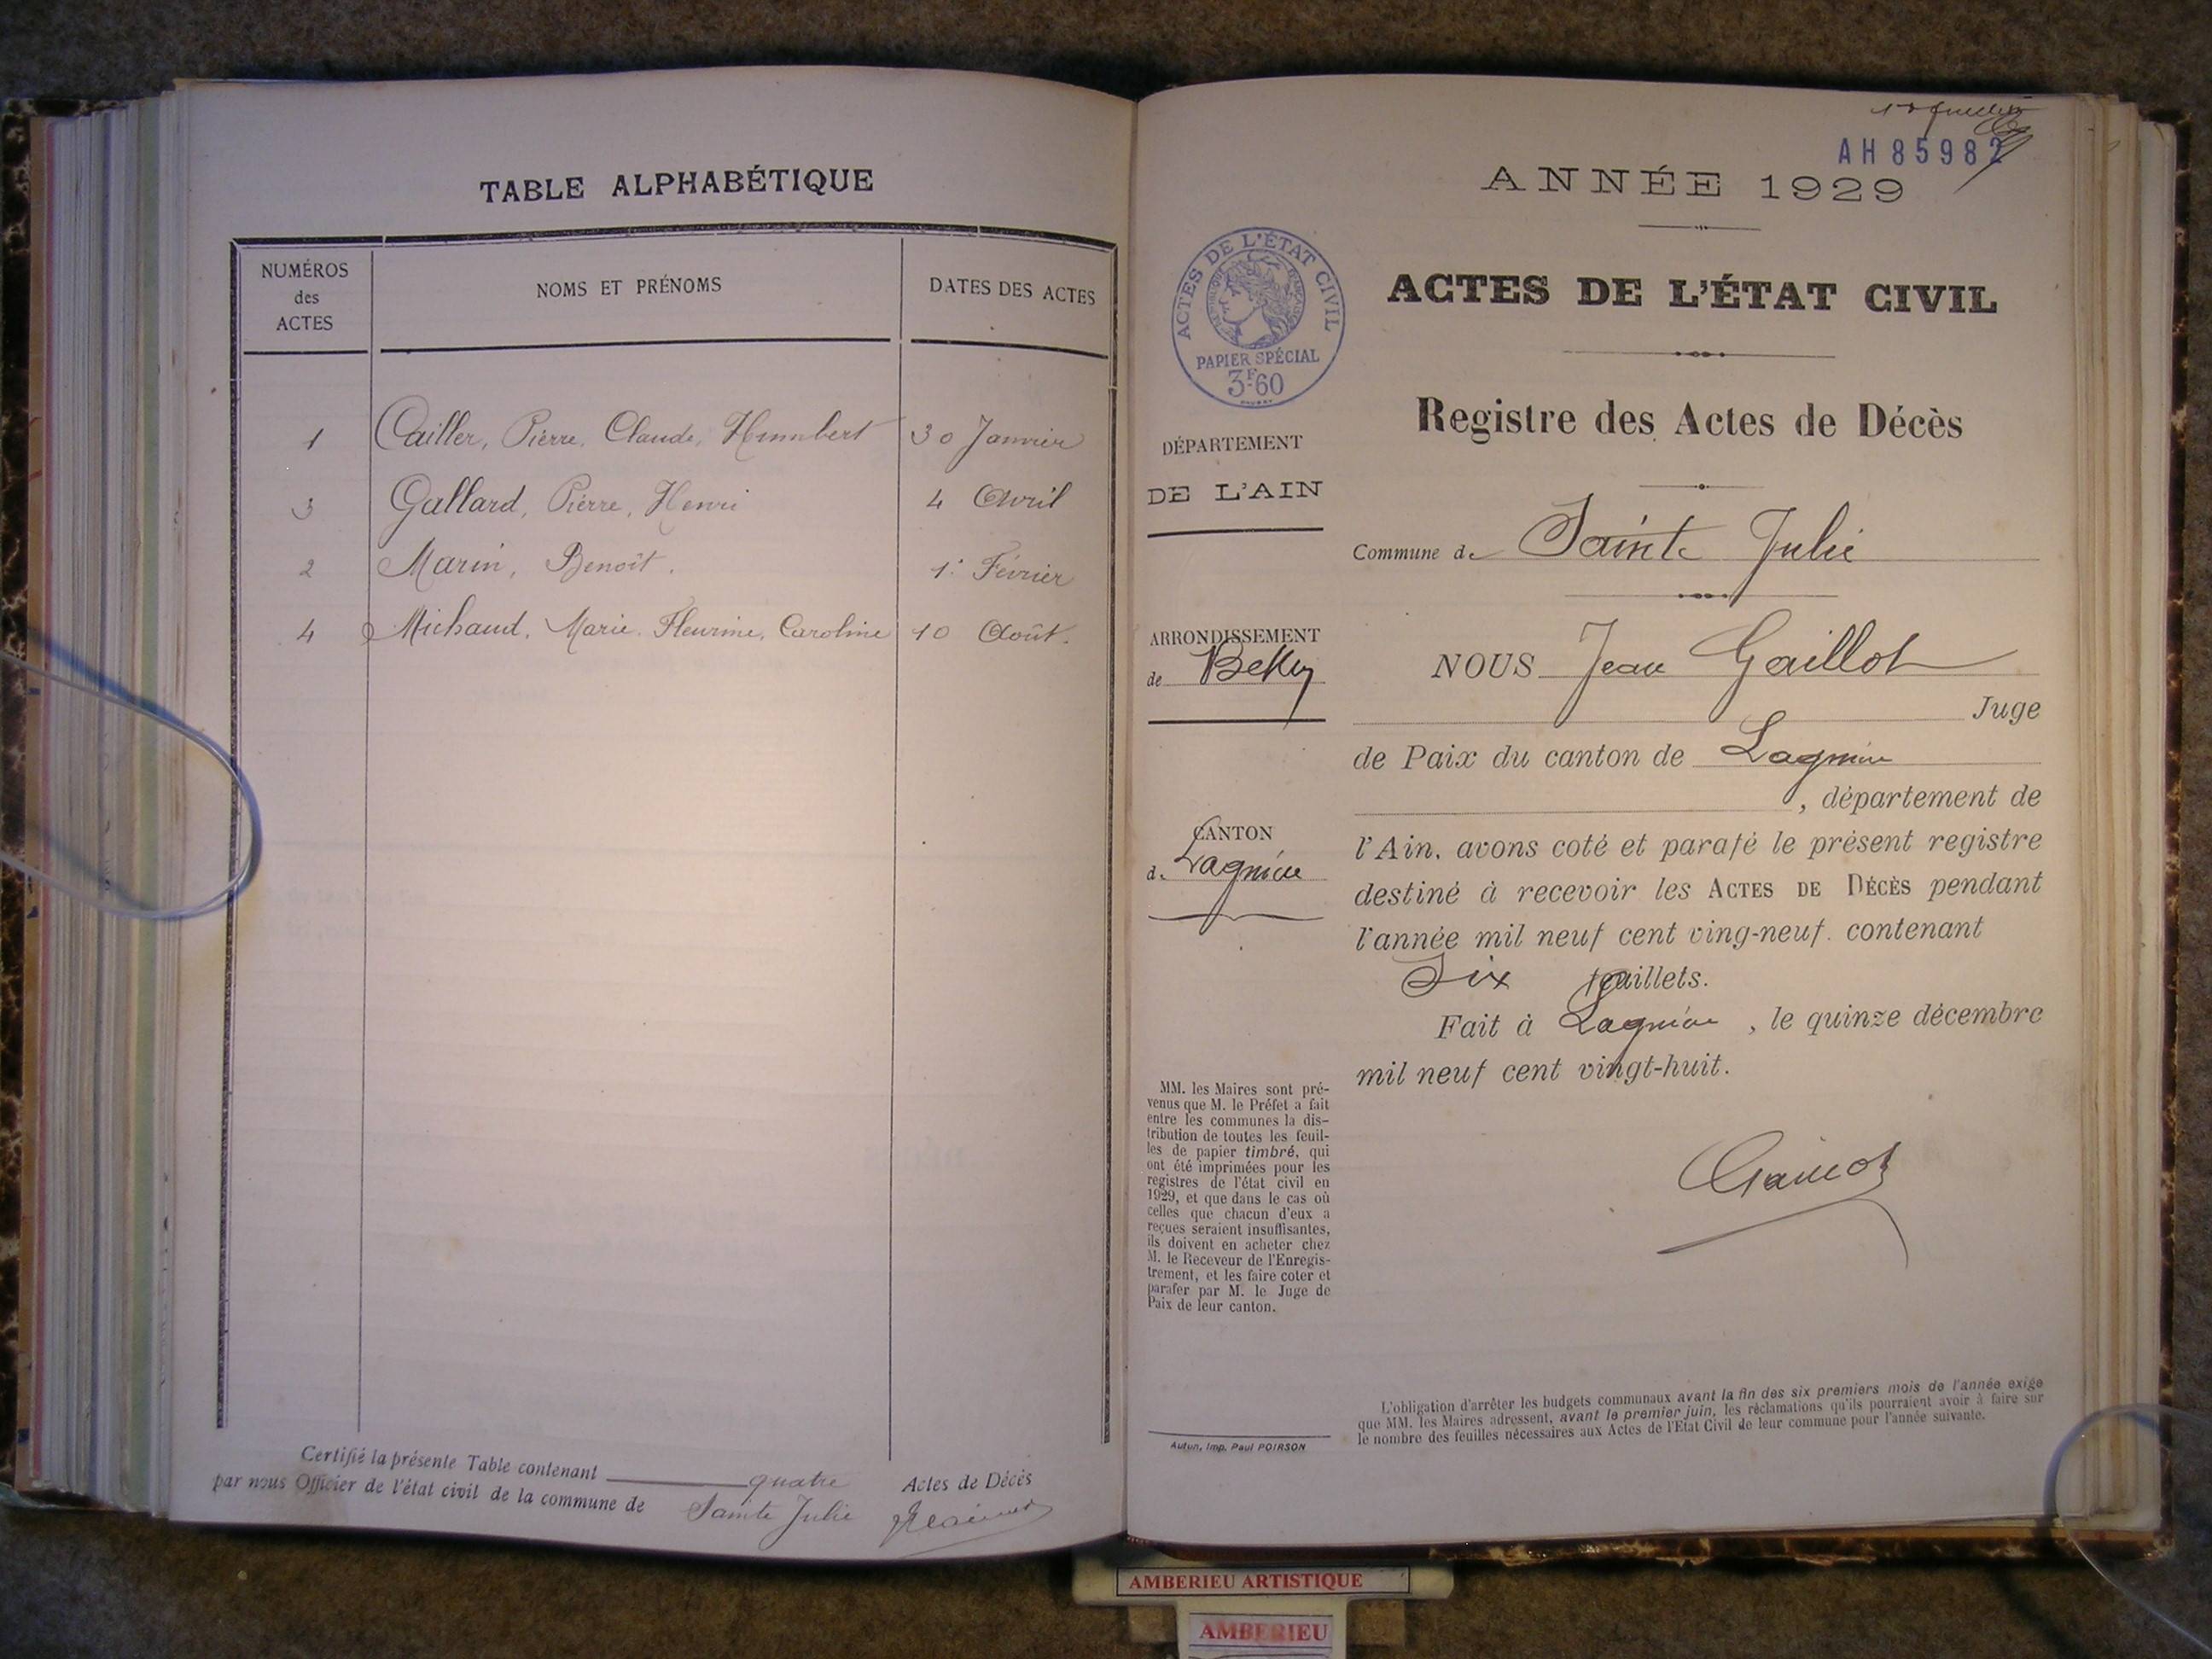 TABLE ALPHABÉTIQUE
NUMÉROS
des
ACTES
NOMS ET PRÉNOMS
DATES DES ACTES
1 Cailler, Pierre, Claude, Humbert 30 Janvier
3 Gallard, Pierre, Henri 4 Avril
2 Marin, Benoît. 1er Février
4 Michaud, Marie, Fleurine, Caroline 10 Août.
Certifié la présente Table contenant quatre Actes de Décès
par nous Officier de l'état civil de la commune de Sainte Julie
AH 85982
ANNÉE 1929
ACTES DE L'ÉTAT CIVIL
PAPIER SPÉCIAL
3F60
ACTES DE L'ÉTAT CIVIL
Registre des Actes de Décès
DÉPARTEMENT
DE L'AIN
Commune de Sainte Julie
ARRONDISSEMENT
de Belley
CANTON
de Lagnieu
NOUS Jean Gaillot
Juge
de Paix du canton de Lagnieu
, département de
l'Ain, avons coté et parafé le présent registre
destiné à recevoir les ACTES DE DÉCÈS pendant
l'année mil neuf cent ving-neuf. contenant
Six feuillets.
Fait à Lagnieu, le quinze décembre
mil neuf cent vingt-huit.
Gaillot
MM. les Maires sont pré-
venus que M. le Préfet a fait
entre les communes la dis-
tribution de toutes les feuil-
les de papier timbré, qui
ont été imprimées pour les
registres de l'état civil en
1929, et que dans le cas où
celles que chacun d'eux a
reçues seraient insuffisantes,
ils doivent en acheter chez
M. le Receveur de l'Enregis-
trement, et les faire coter et
parafer par M. le Juge de
Paix de leur canton.
Autun, Imp. Paul POIRSON
L'obligation d'arrêter les budgets communaux avant la fin des six premiers mois de l'année exige
que MM. les Maires adressent, avant le premier juin, les réclamations qu'ils pourraient avoir à faire sur
le nombre des feuilles nécessaires aux Actes de l'Etat Civil de leur commune pour l'année suivante.
AMBERIEU ARTISTIQUE
AMBERIEU